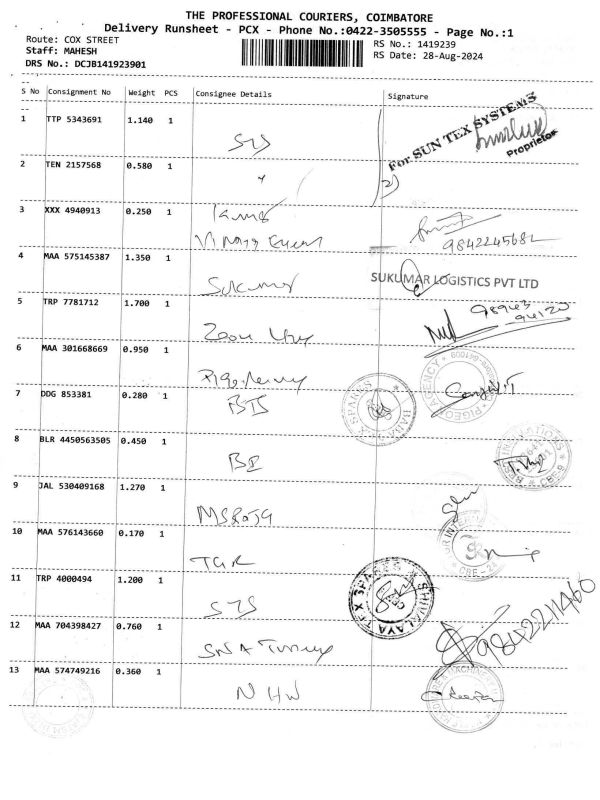 THE PROFESSIONAL COURIERS, COIMBATORE
Delivery Runsheet - PCX - Phone No.:0422-3505555 - Page No.:1
Route: COX STREET
Staff: MAHESH
DRS No.: DCJB141923901
RS No.: 1419239
RS Date: 28-Aug-2024
S No Consignment No Weight PCS Consignee Details Signature
1 TTP 5343691 1.140 1 STS
For SUN TEX SYSTEMS
Proprietor
2 TEN 2157568 0.580 1
2)
3 XXX 4940913 0.250 1
9842245682
4 MAA 575145387 1.350 1 Sukumar
SUKUMAR LOGISTICS PVT LTD
5 TRP 7781712 1.700 1
98943
94120
6 MAA 301668669 0.950 1
PIGEON AGENCY
7 DDG 853381 0.280 1 BTS
8 BLR 4450563505 0.450 1
9 JAL 530409168 1.270 1
10 MAA 576143660 0.170 1 TGR
CBE-24
11 TRP 4000494 1.200 1 STS
SHIVALAYA TEX SPARES
12 MAA 704398427 0.760 1 SNA
9842211460
13 MAA 574749216 0.360 1 NHW